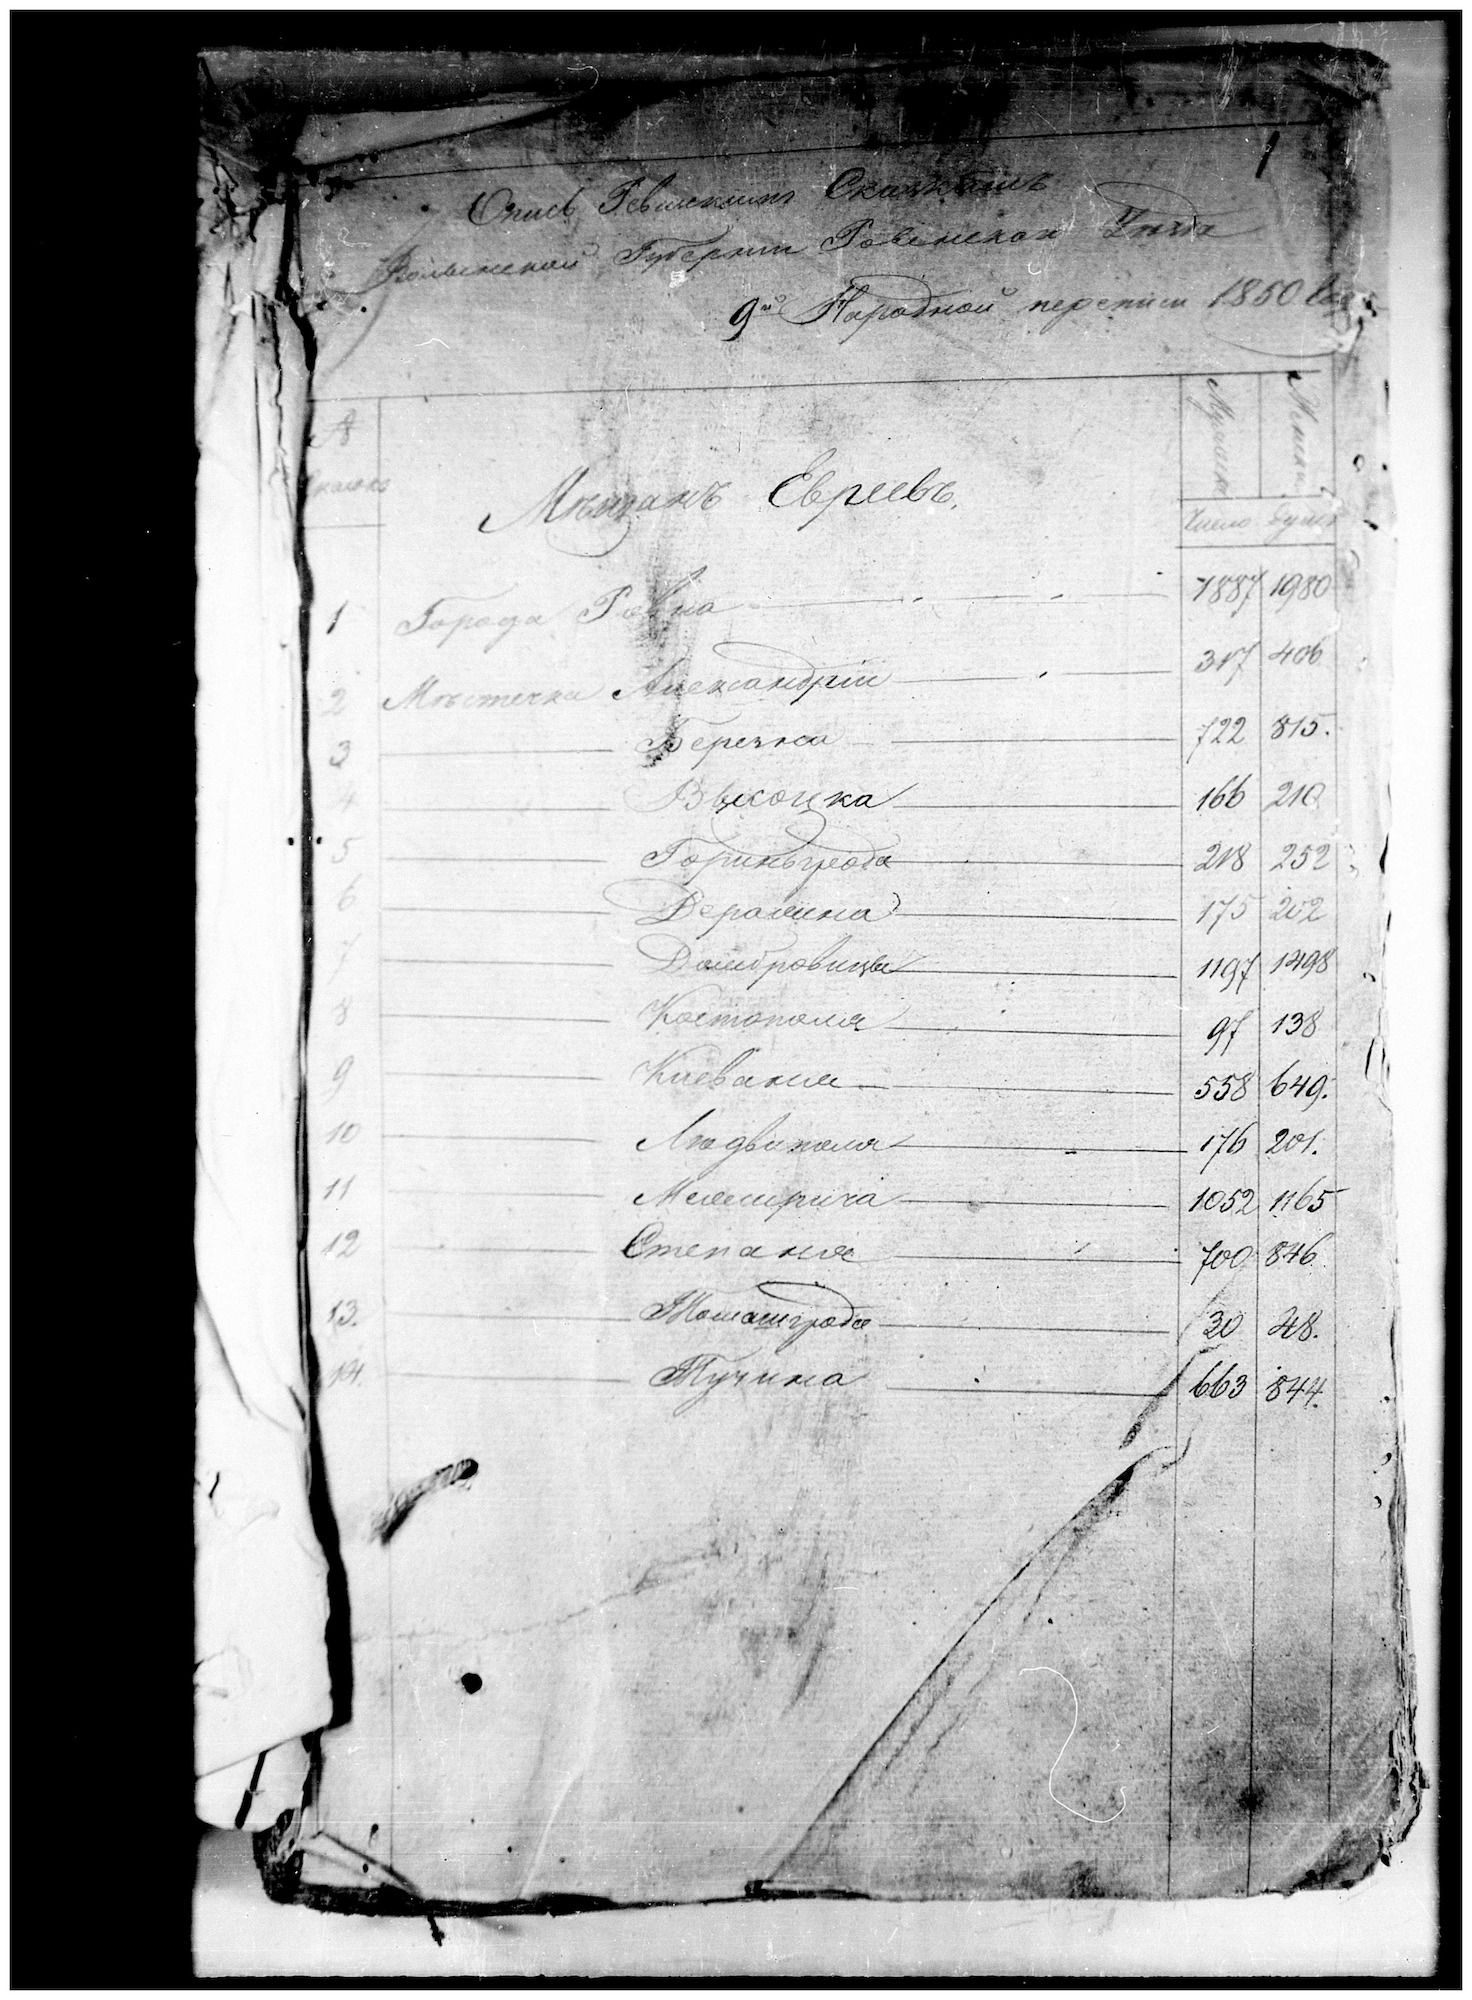 1
Опись Ревизскимъ Сказкамъ
Волынской Губернии Ровенскаго Уезда
9й Народной переписи 1850 Года
№
Мужеска
Женска
Мещанъ Евреевъ.
Число душъ
1 Города Ровна 1887 1980
2 Местечка Александріи 317 406
3 Березна 722 815.
4 Высоцка 166 210
5 Горинъграда 218 252
6 Деражна 175 202
7 Домбровицы 1197 1498
8 Костополя 97 138
9 Клеваня 558 649.
10 Людвиполя 176 201.
11 Межирича 1052 1165
12 Степаня 700 846
13. Томашграда 30 48.
14. Тучина 663 844.